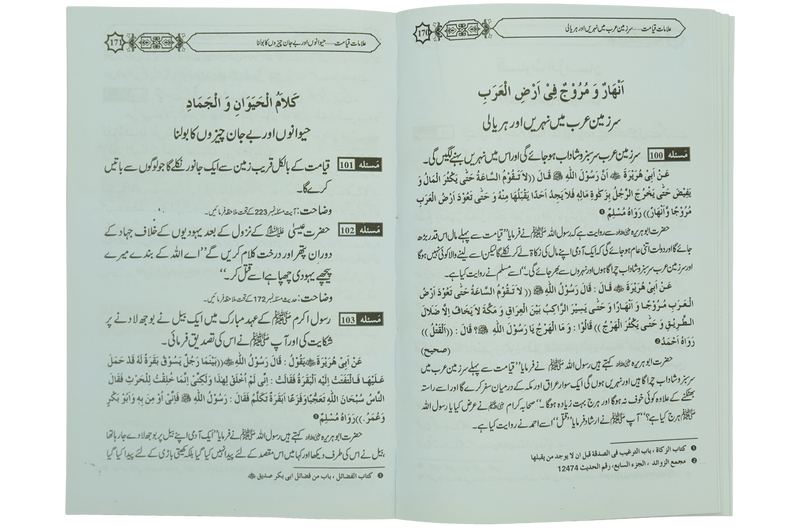 علامات قیامت ..... سرزمین عرب میں نہریں اور ہریالی
170
اَنْهَارٌ وَ مُرُوْجٌ فِیْ اَرْضِ الْعَرَبِ
سرزمین عرب میں نہریں اور ہریالی
مسئلہ 100 سرزمین عرب سرسبز و شاداب ہوجائے گی اور اس میں نہریں بہنے لگیں گی۔
عَنْ اَبِیْ هُرَیْرَةَ ﷺ اَنَّ رَسُوْلَ اللّٰهِ ﷺ قَالَ ((لاَ تَقُوْمُ السَّاعَةُ حَتّٰی یَكْثُرَ الْمَالُ وَ
یَفِیْضَ حَتّٰی یَخْرُجَ الرَّجُلُ بِزَكٰوةِ مَالِهٖ فَلاَ یَجِدُ اَحَدًا یَقْبَلُهَا مِنْهُ وَ حَتّٰی تَعُوْدَ اَرْضُ الْعَرَبِ
مُرُوْجًا وَّ اَنْهَارًا)) رَوَاهُ مُسْلِمٌ ❶
حضرت ابوہریرہ کہتے ہیں رسول اللہ ﷺ نے فرمایا "قیامت سے پہلے مال اس قدر بڑھ
جائے گا اور دولت اتنی عام ہوجائے گی کہ ایک آدمی اپنے مال کی زکاۃ لے کر نکلے گا لیکن اسے لینے والا کوئی نہیں ہوگا
اور سرزمین عرب سرسبز و شاداب چراگاہوں اور نہروں سے بھر جائے گی۔" اسے مسلم نے روایت کیا ہے۔
عَنْ اَبِیْ هُرَیْرَةَ قَالَ : قَالَ رَسُوْلُ اللّٰهِ ﷺ (( لاَ تَقُوْمُ السَّاعَةُ حَتّٰی تَعُوْدَ اَرْضُ
الْعَرَبِ مُرُوْجًا وَ اَنْهَارًا وَ حَتّٰی یَسِیْرَ الرَّاكِبُ بَیْنَ الْعِرَاقِ وَ مَكَّةَ لاَ یَخَافُ اِلاَّ ضَلاَلَ
الطَّرِیْقِ وَ حَتّٰی یَكْثُرَ الْهَرْجُ )) قَالُوْا : وَ مَا الْهَرْجُ یَا رَسُوْلَ اللّٰهِ ﷺ ؟ قَالَ : ((اَلْقَتْلُ))
رَوَاهُ اَحْمَدُ ❷ (صحیح)
حضرت ابوہریرہ کہتے ہیں رسول اللہ ﷺ نے فرمایا "قیامت سے پہلے سرزمین عرب میں
سرسبز و شاداب چراگاہیں اور نہریں ہوں گی ایک سوار عراق اور مکہ کے درمیان سفر کرے گا اور اسے راستہ
بھٹکنے کے علاوہ کوئی خوف نہ ہوگا اور ہرج بہت زیادہ ہوگا۔" صحابہ کرام نے عرض کیا یا رسول اللہ
ﷺ! ہرج کیا ہے؟" آپ ﷺ نے ارشاد فرمایا "قتل" اسے احمد نے روایت کیا ہے۔
❶ كتاب الزكاة ، باب الترغیب فی الصدقة قبل ان لا یوجد من یقبلها
❷ مجمع الزوائد ، الجزء السابع، رقم الحدیث 12474
علامات قیامت ..... حیوانوں اور بے جان چیزوں کا بولنا
171
كَلاَمُ الْحَیَوَانِ وَ الْجَمَادِ
حیوانوں اور بے جان چیزوں کا بولنا
مسئلہ 101 قیامت کے بالکل قریب زمین سے ایک جانور نکلے گا جو لوگوں سے باتیں
کرے گا۔
وضاحت: آیت مسئلہ نمبر 223 کے تحت ملاحظہ فرمائیں۔
مسئلہ 102 حضرت عیسیٰ کے نزول کے بعد یہودیوں کے خلاف جہاد کے
دوران پتھر اور درخت کلام کریں گے "اے اللہ کے بندے میرے
پیچھے یہودی چھپا ہے اسے قتل کر۔"
وضاحت: حدیث مسئلہ نمبر 172 کے تحت ملاحظہ فرمائیں۔
مسئلہ 103 رسول اکرم ﷺ کے عہد مبارک میں ایک بیل نے بوجھ لادنے پر
شکایت کی اور آپ ﷺ نے اس کی تصدیق فرمائی۔
عَنْ اَبِیْ هُرَیْرَةَ یَقُوْلُ : قَالَ رَسُوْلُ اللّٰهِ ﷺ ((بَیْنَمَا رَجُلٌ یَسُوْقُ بَقَرَةً لَهُ قَدْ حَمَلَ
عَلَیْهَا اِلْتَفَتَتْ اِلَیْهِ الْبَقَرَةُ فَقَالَتْ : اِنِّیْ لَمْ اُخْلَقْ لِهٰذَا وَلٰكِنِّیْ اِنَّمَا خُلِقْتُ لِلْحَرْثِ فَقَالَ
النَّاسُ سُبْحَانَ اللّٰهِ تَعَجُّبًا وَفَزَعًا اَبَقَرَةٌ تَكَلَّمُ فَقَالَ : رَسُوْلُ اللّٰهِ ﷺ فَاِنِّیْ اُوْمِنُ بِهِ وَ اَبُوْ بَكْرٍ
وَ عُمَرُ .)) رَوَاهُ مُسْلِمٌ ❶
حضرت ابوہریرہ کہتے ہیں رسول اللہ ﷺ نے فرمایا "ایک آدمی اپنے بیل پر بوجھ لادے جا رہا تھا
بیل نے اس کی طرف دیکھا اور کہا میں اس مقصد کے لئے پیدا نہیں کیا گیا بلکہ کھیتی باڑی کے لئے پیدا کیا گیا
❶ كتاب الفضائل ، باب من فضائل ابی بكر صدیق